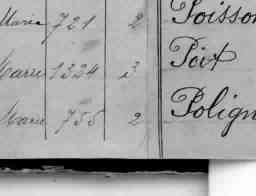 Marie 721 2 Poisson
Marie 1324 3 Poix
Marie 755 2 Polign